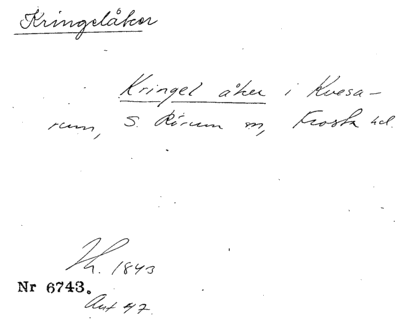 Kringelåker
Kringel åker i Kvesa-
rum, S. Rörum m, Frosta hd.
Th. 1843
Nr 6743.
Ant 47.